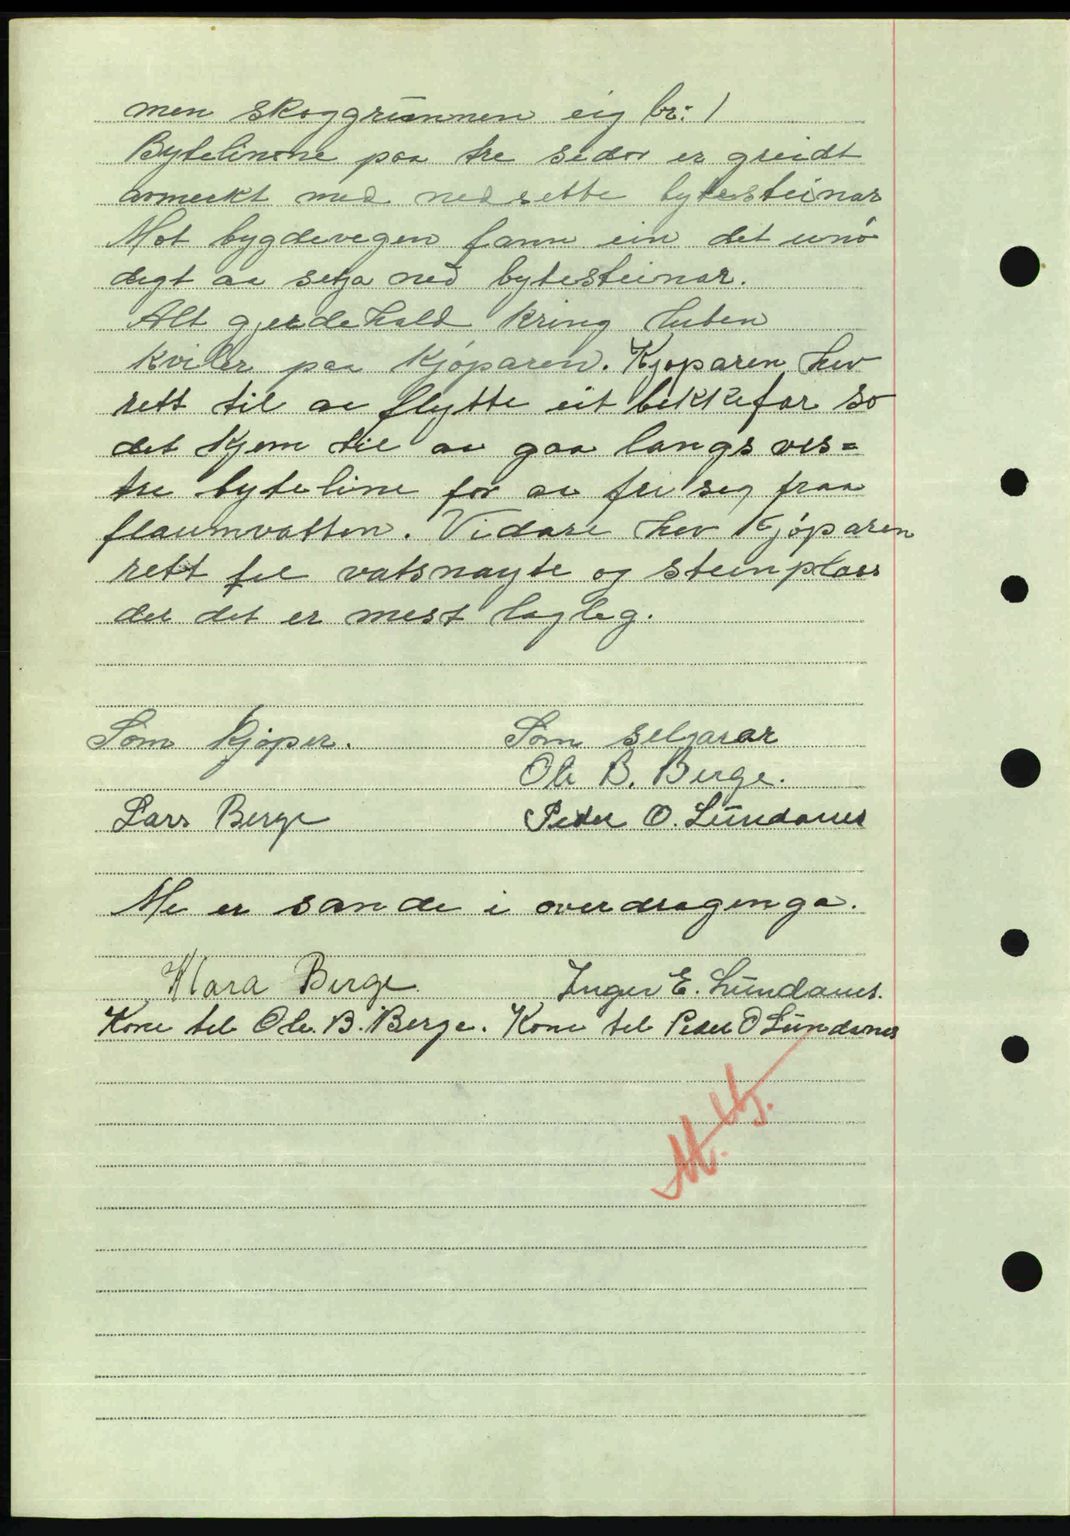 men skoggrunnen eig br: 1
Bytelinone paa tre sidor er greidt
avmerkt med nedsette bytesteinar
Mot bygdevegen fann ein det unø
digt aa setja ned bytesteinar.
Alt gjerdehald kring luten
kviler paa kjøparen. Kjøparen hev
rett til aa flytte eit bekkefar so
det kjem til aa gaa langs ves=
tre byteline for aa fri seg fraa
flaumvatten. Vidare hev kjøparen
rett til vatsnøyte og steinplass
der det er mest lagleg.
Som kjøper. Som seljarar
Ole B. Berge.
Lars Berge Peder O. Lundanes
Me er sande i overdraginga.
Klara Berge Inger E. Lundanes.
Kone til Ole. B. Berge. Kone til Peder O Lundanes